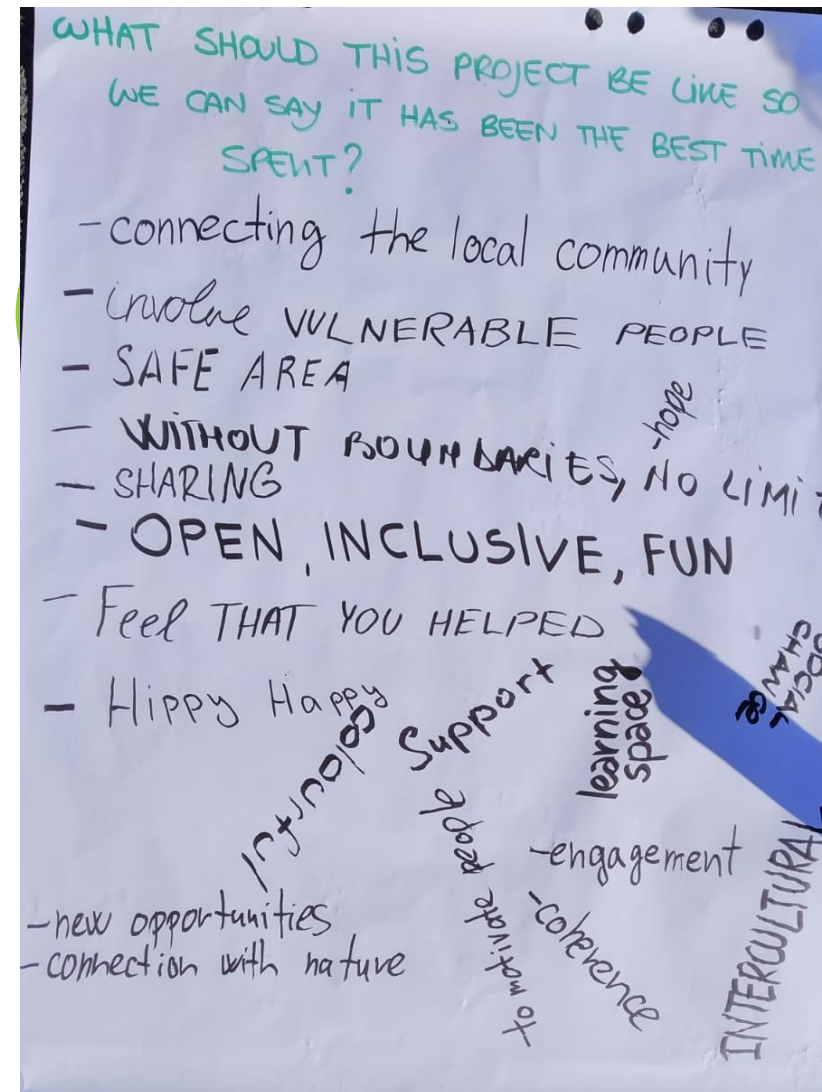 WHAT SHOULD THIS PROJECT BE LIKE SO
WE CAN SAY IT HAS BEEN THE BEST TIME
SPENT?
- connecting the local community
- involve VULNERABLE PEOPLE
- SAFE AREA
- hope
- WITHOUT BOUNDARIES, NO LIMIT
- SHARING
- OPEN, INCLUSIVE, FUN
- Feel THAT YOU HELPED
- Hippy Happy
colourful
Support
learning
space
SOCIAL
CHANGE
to motivate people
- engagement
- coherence
INTERCULTURAL
- new opportunities
- connection with nature